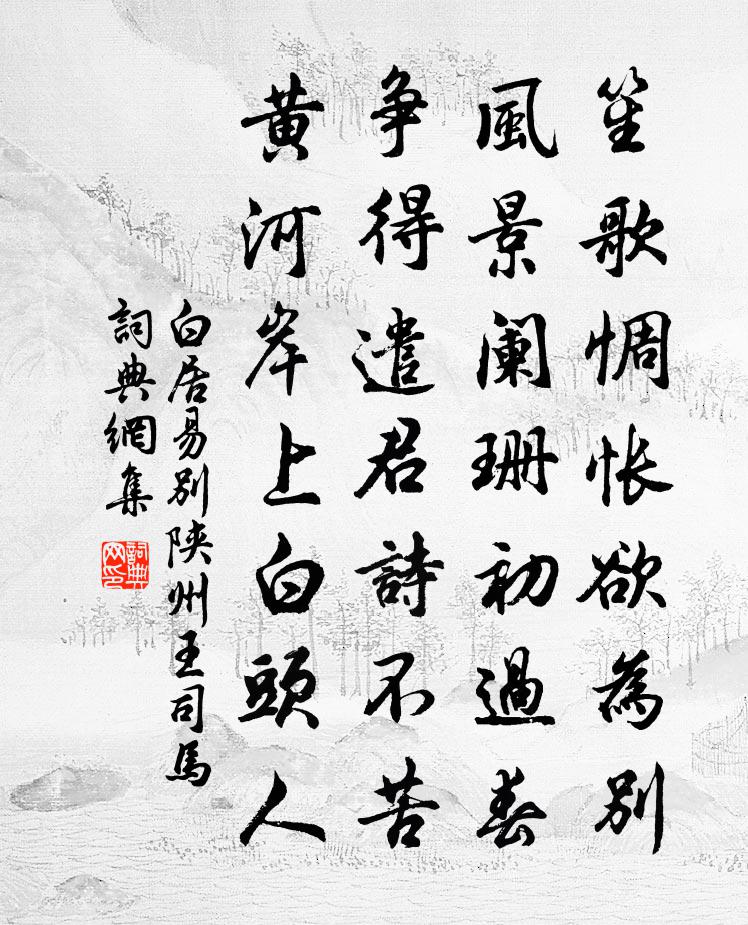 笙歌惆悵欲為別
風景闌珊初過春
爭得遣君詩不苦
黃河岸上白頭人
白居易別陝州王司馬
詞典網集
詞典网印